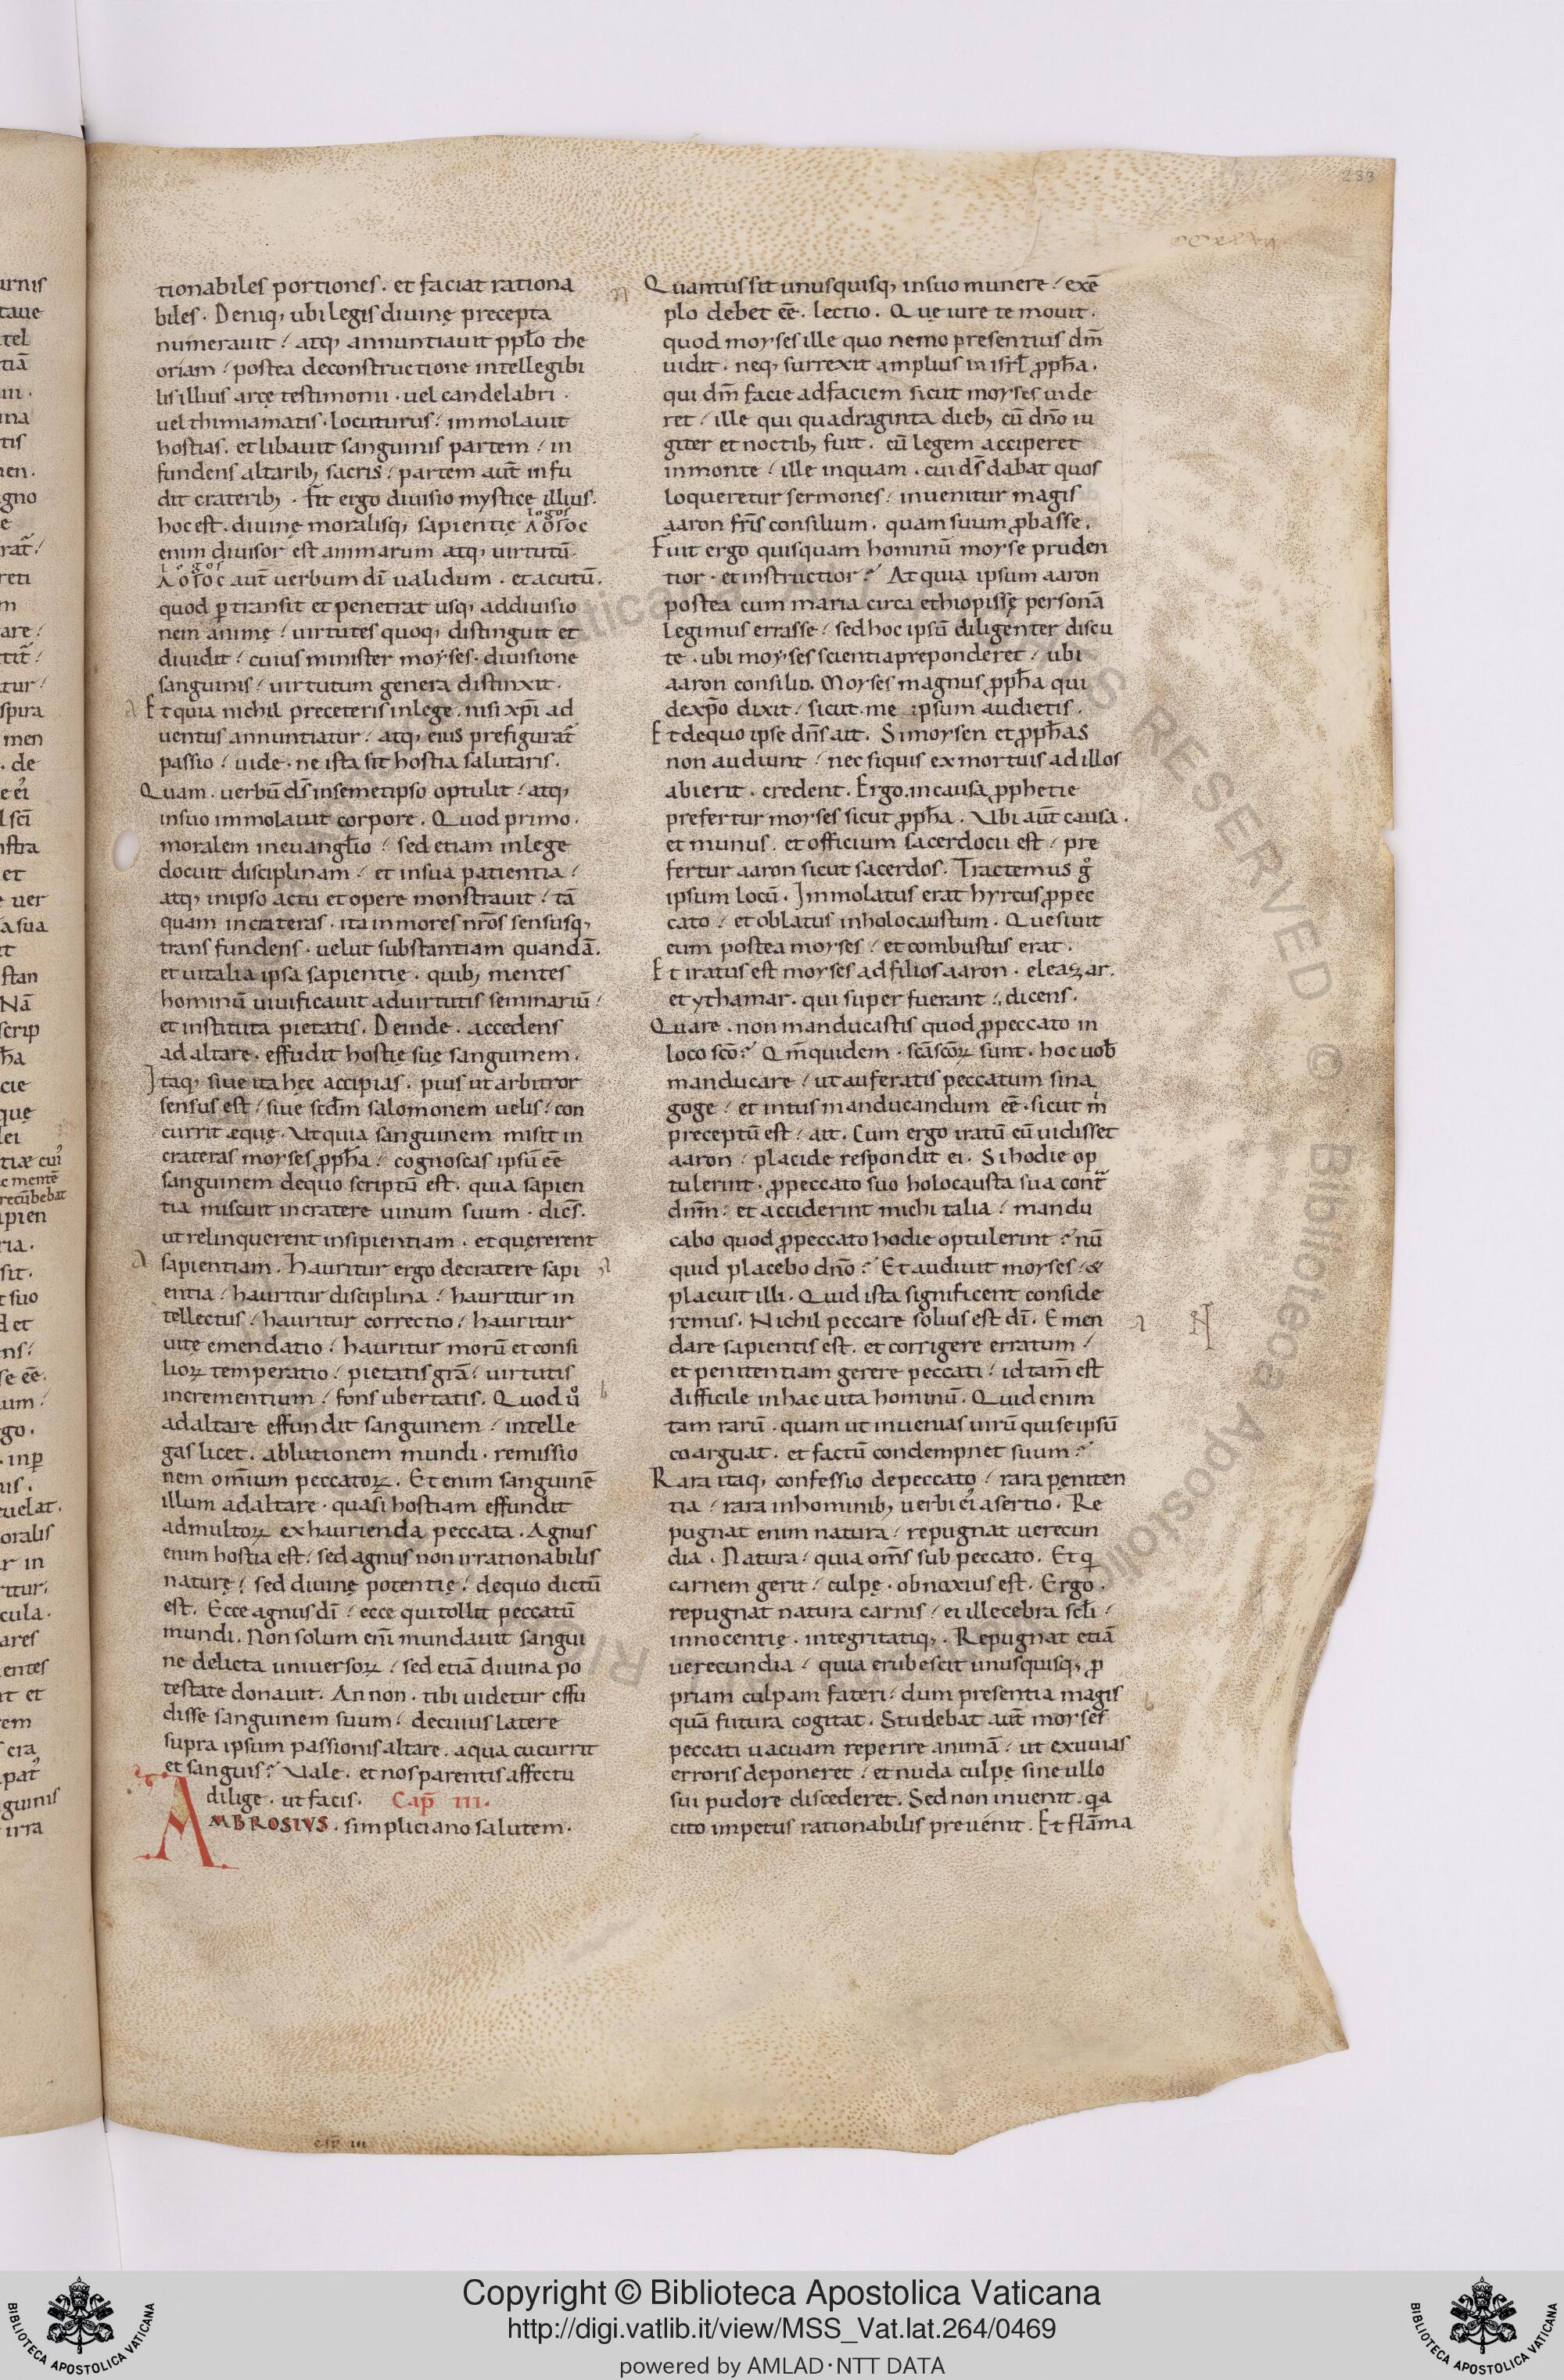 233
tionabiles portiones. et faciat rationa
biles. Deniq; ubi legis diuinę precepta
numerauit / atq; annuntiauit ppło the
oriam / postea deconstructione intellegibi
lis illius arcę testimonii. uel candelabri.
uel thimiamatis. locuturus / immolauit
hostias. et libauit sanguinis partem / in
fundens altarib; sacris / partem aut̄ infu
dit craterib;. Fit ergo diuisio mysticę illius.
logos
hoc est. diuinę moralisq; sapientię ΛΟΓΟC
enim diuisor est animarum atq; uirtutū
logos
ΛΟΓΟC aut̄ uerbum dī ualidum. et acutū.
quod ꝑtransit et penetrat usq; addiuisio
nem animę / uirtutes quoq; distinguit et
diuidit / cuius minister moyses. diuisione
sanguinis / uirtutum genera distinxit.
Et quia nichil preceteris inlege. nisi xp̄i ad
uentus annuntiatur / atq; eius prefigurat̄
passio / uide. ne ista sit hostia salutaris.
Quam. uerbū ds̄ insemetipso optulit / atq;
insuo immolauit corpore. Quod primo.
moralem ineuangłio / sed etiam inlege
docuit disciplinam / et insua patientia /
atq; inipso actu et opere monstrauit / tā
quam incrateras. ita inmores nr̄os sensusq;
transfundens. uelut substantiam quandā.
et uitalia ipsa sapientię. quib; mentes
hominū uiuificauit aduirtutis seminariū /
et instituta pietatis. Deinde. accedens
ad altare. effudit hostię suę sanguinem.
Itaq; siue ita hęc accipias. pius ut arbitror
sensus est / siue scd̄m salomonem uelis / con
currit ęquę. Vt quia sanguinem misit in
crateras moyses ꝓpħa / cognoscas ipsū ee̅
sanguinem dequo scriptū est. quia sapien
tia miscuit incratere uinum suum. dices̄.
ut relinquerent insipientiam. et quęrerent
sapientiam. Hauritur ergo decratere sapi
entia / hauritur disciplina / hauritur in
tellectus / hauritur correctio / hauritur
uitę emendatio / hauritur morū et consi
lioꝝ temperatio / pietatis gr̄a / uirtutis
incrementium / fons ubertatis. Quod uͦ
adaltare effundit sanguinem / intelle
gas licet. ablutionem mundi. remissio
nem om̄ium peccatoꝝ. Et enim sanguinē
illum adaltare. quasi hostiam effundit
admultoꝝ exhaurienda peccata. Agnus
enim hostia est / sed agnus non irrationabilis
naturę / sed diuinę potentię / dequo dictū
est. Ecce agnus dī / ecce qui tollit peccatū
mundi. Non solum eni̅ mundauit sangui
ne delicta uniuersoꝝ / sed etiā diuina po
testate donauit. An non. tibi uidetur effu
disse sanguinem suum / decuius latere
supra ipsum passionis altare. aqua cucurrit
et sanguis? Vale. et nos parentis affectu
dilige. ut facis. Cap̄ III.
AMBROSIVS. simpliciano salutem.
Quantus sit unusquisq; insuo munere / exē
plo debet ee̅. lectio. Quę iure te mouit.
quod moyses ille quo nemo presentius dm̄
uidit. neq; surrexit amplius in isrł ꝓpħa.
qui dm̄ facie adfaciem sicut moyses uide
ret / ille qui quadraginta dieb; cū dn̄o iu
giter et noctib; fuit. cū legem acciperet
inmonte / ille inquam. cui ds̄ dabat quos
loqueretur sermones / inuenitur magis
aaron fr̄is consilium. quam suum ꝓbasse.
Fuit ergo quisquam hominū moyse pruden
tior. et instructior? At quia ipsum aaron
postea cum maria circa ethiopissę personā
legimus errasse / sed hoc ipsū diligenter discu
te. ubi moyses scientia preponderet / ubi
aaron consilio. Moyses magnus ꝓpħa qui
dexp̄o dixit / sicut me ipsum audietis.
Et dequo ipse dn̄s ait. Si moysen et ꝓpħas
non audiunt / nec siquis ex mortuis ad illos
abierit. credent. Ergo. in causa ꝓphetię
prefertur moyses sicut ꝓpħa. Vbi aut̄ causa.
et munus. et officium sacerdocii est / pre
fertur aaron sicut sacerdos. Tractemus gͦ
ipsum locū. Immolatus erat hyrcus ꝓpec
cato / et oblatus inholocaustum. Quesiuit
eum postea moyses / et combustus erat.
Et iratus est moyses ad filios aaron. eleazar.
et ythamar. qui super fuerant / dicens.
Quare. non manducastis quod ꝓpeccato in
loco sc̄o? Qm̄ quidem. sc̄a sc̄oꝝ sunt. hoc uob̄
manducare / ut auferatis peccatum sina
goge / et intus manducandum ee̅. sicut m̄
preceptū est / ait. Cum ergo iratū eū uidisset
aaron / placide respondit ei. Si hodie op
tulerint. ꝓpeccato suo holocausta sua contͣ
dnm̄ / et acciderint michi talia / mandu
cabo quod ꝓpeccato hodie optulerint? nū
quid placebo dn̄o? Et audiuit moyses / &
placuit illi. Quid ista significent conside
remus. Nichil peccare solius est dī. Emen
dare sapientis est. et corrigere erratum /
et penitentiam gerere peccati / id tam̄ est
difficile in hac uita hominū. Quid enim
tam rarū. quam ut inuenias uirū qui se ipsū
coarguat. et factū condempnet suum?
Rara itaq; confessio depeccato / rara pęniten
tia / rara inhominib; uerbi ei' asertio. Re
pugnat enim natura / repugnat uerecun
dia. Natura / quia om̄s sub peccato. Et q
carnem gerit / culpę. obnoxius est. Ergo.
repugnat natura carnis / ei illecebra scłi /
innocentię. integritatiq;. Repugnat etiā
uerecundia / quia erubescit unusquisq; ꝓ
priam culpam fateri / dum presentia magis
quā futura cogitat. Studebat aut̄ moyses
peccati uacuam reperire animā / ut exuuias
erroris deponeret / et nuda culpę sine ullo
sui pudore discederet. Sed non inuenit. qa
cito impetus rationabilis preuenit. Et flāma
Copyright © Biblioteca Apostolica Vaticana
http://digi.vatlib.it/view/MSS_Vat.lat.264/0469
powered by AMLAD·NTT DATA